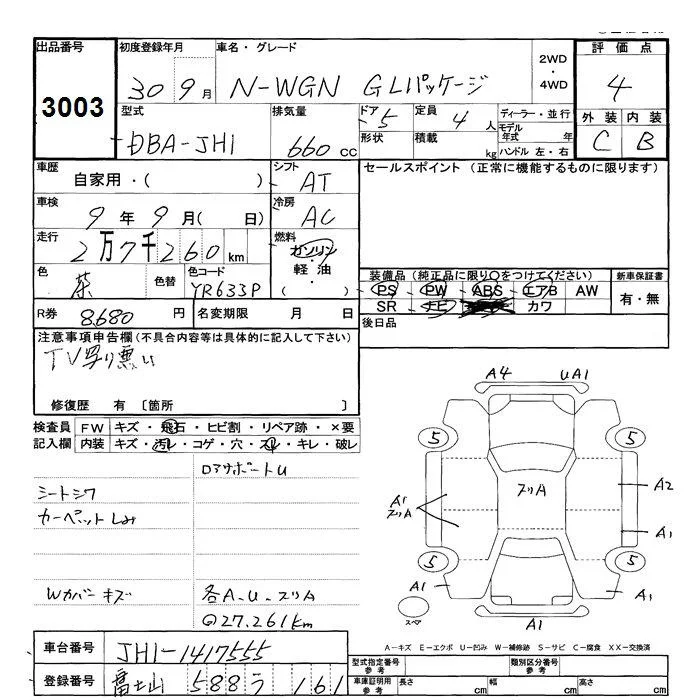 出品番号 3003
初度登録年月 30 9月
車名・グレード N-WGN GLパッケージ
2WD・4WD
評価点 4
型式 DBA-JH1
排気量 660cc
ドア 5
形状
定員 4人
積載 kg
ディーラー・並行
モデル年式 年
ハンドル 左・右
外装 C
内装 B
車歴 自家用・( )
シフト AT
セールスポイント (正常に機能するものに限ります)
車検 9年9月( 日)
冷房 AC
走行 2万7千260km
燃料 ガソリン・軽油・( )
色 茶
色替
色コード YR633P
装備品 (純正品に限り○をつけてください)
PS PW ABS エアB AW
SR ナビ カワ
新車保証書 有・無
R券 8680円
名変期限 月 日
後日品
注意事項申告欄(不具合内容等は具体的に記入して下さい)
TV写り悪い
修復歴 有 〔箇所 〕
検査員記入欄
FW キズ・飛石・ヒビ割・リペア跡・×要
内装 キズ・汚レ・コゲ・穴・スレ・キレ・破レ
シートシワ
カーペットしみ
Wカバーキズ
各A.U.スリA
27.261km
A4 UA1
5 5
スリA
A1 スリA
A2
A1
5 5
A1 A1
スペア
A1
A-キズ E-エクボ U-凹み W-補修跡 S-サビ C-腐食 XX-交換済
車台番号 JH1-1417555
登録番号 富士山 588 う 161
型式指定番号 参考
類別区分番号 参考
車庫証明用 参考 長さ cm 幅 cm 高さ cm